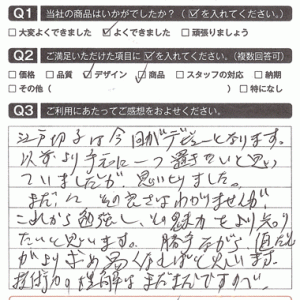 Q1 当社の商品はいかがでしたか?(☑を入れてください。)
□大変よくできました ☑よくできました □頑張りましょう
Q2 ご満足いただけた項目に☑を入れてください。(複数回答可)
□価格 □品質 ☑デザイン ☑商品 □スタッフの対応 □納期
□その他( )□特になし
Q3 ご利用にあたってご感想をおよせください。
江戸切子は今回がデビューとなります。
以前より手元に一つ置きたいと思っ
ていましたが、思いとりました。
まだ その良さはわかりませんが、
これから勉強し、その魅力をより知り
たいと思います。勝手ながら、値だん
がより求め易くなればと思います。
技術力の はまだまだですので。